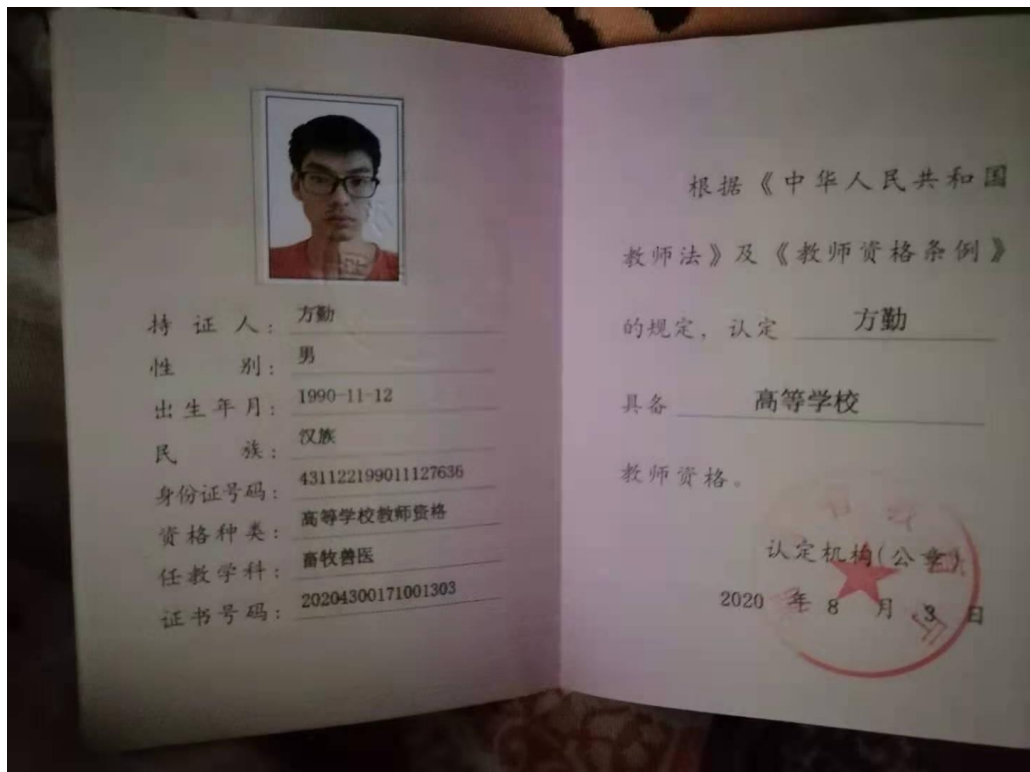 持证人：方勤
性别：男
出生年月：1990-11-12
民族：汉族
身份证号码：431122199011127636
资格种类：高等学校教师资格
任教学科：畜牧兽医
证书号码：20204300171001303
根据《中华人民共和国
教师法》及《教师资格条例》
的规定，认定 方勤
具备 高等学校
教师资格。
认定机构(公章)
2020 年 8 月 3 日